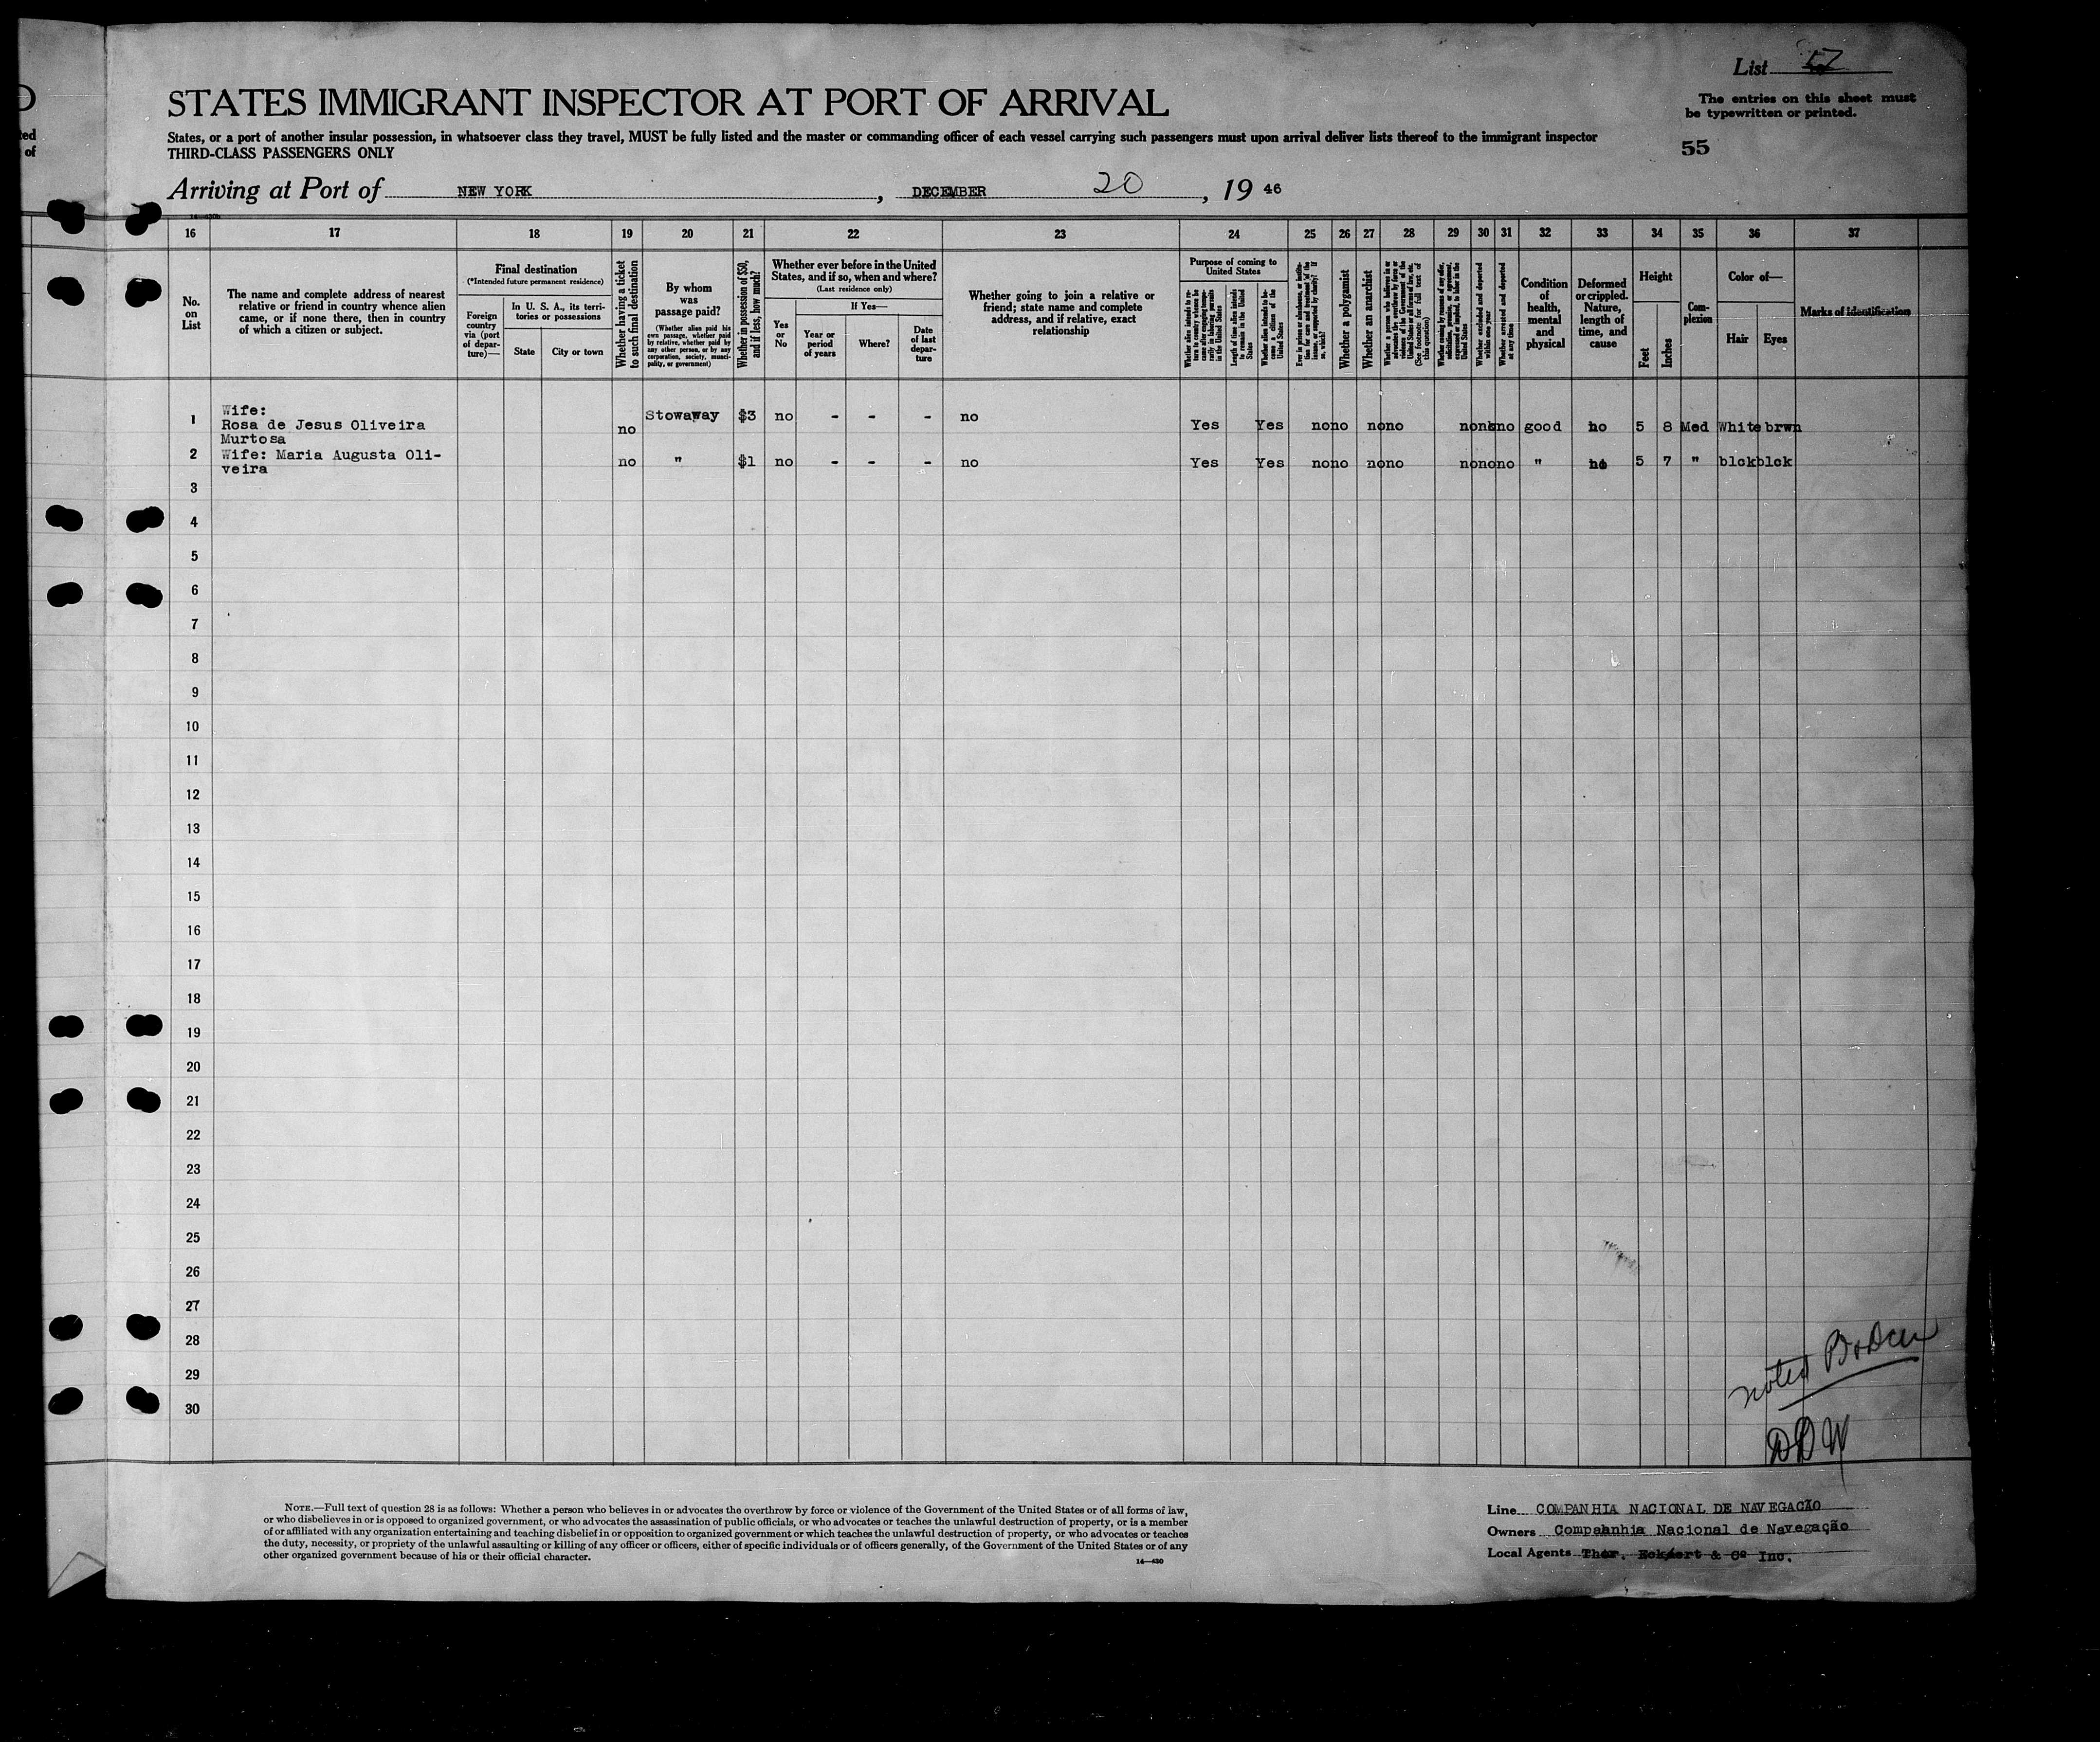 List 17
STATES IMMIGRANT INSPECTOR AT PORT OF ARRIVAL
The entries on this sheet must
be typewritten or printed.
States, or a port of another insular possession, in whatsoever class they travel, MUST be fully listed and the master or commanding officer of each vessel carrying such passengers must upon arrival deliver lists thereof to the immigrant inspector
THIRD-CLASS PASSENGERS ONLY
55
Arriving at Port of NEW YORK, DECEMBER 20, 19 46
16 17 18 19 20 21 22 23 24 25 26 27 28 29 30 31 32 33 34 35 36 37
No.
on
List
The name and complete address of nearest
relative or friend in country whence alien
came, or if none there, then in country
of which a citizen or subject.
Final destination
(*Intended future permanent residence)
Foreign
country
via (port
of depar-
ture)—
In U. S. A., its terri-
tories or possessions
State
City or town
Whether having a ticket
to such final destination
By whom
was
passage paid?
(Whether alien paid his
own passage, whether paid
by relative, whether paid by
any other person, or by any
corporation, society, munici-
pality, or government)
Whether in possession of $50,
and if less, how much?
Whether ever before in the United
States, and if so, when and where?
(Last residence only)
Yes
or
No
If Yes—
Year or
period
of years
Where?
Date
of last
depar-
ture
Whether going to join a relative or
friend; state name and complete
address, and if relative, exact
relationship
Purpose of coming to
United States
Whether alien intends to re-
turn to country whence he
came after engaging tempo-
rarily in laboring pursuits
in the United States
Length of time alien intends
to remain in the United
States
Whether alien intends to be-
come a citizen of the
United States
Ever in prison or almshouse, or institu-
tion for care and treatment of the
insane, or supported by charity? If
so, which?
Whether a polygamist
Whether an anarchist
Whether a person who believes in or
advocates the overthrow by force or
violence of the Government of the
United States or all forms of law, etc.
(See footnote for full text of
this question)
Whether coming by reason of any offer,
solicitation, promise, or agreement,
expressed or implied, to labor in the
United States
Whether excluded and deported
within one year
Whether arrested and deported
at any time
Condition
of
health,
mental
and
physical
Deformed
or crippled.
Nature,
length of
time, and
cause
Height
Feet
Inches
Com-
plexion
Color of—
Hair
Eyes
Marks of identification
1 Wife:
Rosa de Jesus Oliveira
Murtosa
no Stowaway $3 no - - - no Yes Yes no no no no no no good no 5 8 Med White brwn
2 Wife: Maria Augusta Oli-
veira
no " $1 no - - - no Yes Yes no no no no no no no " no 5 7 " blck blck
3
4
5
6
7
8
9
10
11
12
13
14
15
16
17
18
19
20
21
22
23
24
25
26
27
28
29
30
noted
DDW
NOTE.—Full text of question 28 is as follows: Whether a person who believes in or advocates the overthrow by force or violence of the Government of the United States or of all forms of law,
or who disbelieves in or is opposed to organized government, or who advocates the assassination of public officials, or who advocates or teaches the unlawful destruction of property, or is a member
of or affiliated with any organization entertaining and teaching disbelief in or opposition to organized government or which teaches the unlawful destruction of property, or who advocates or teaches
the duty, necessity, or propriety of the unlawful assaulting or killing of any officer or officers, either of specific individuals or of officers generally, of the Government of the United States or of any
other organized government because of his or their official character.
14—430
Line COMPANHIA NACIONAL DE NAVEGAÇÃO
Owners Companhia Nacional de Navegação
Local Agents Thor. Eckert & Co Inc.